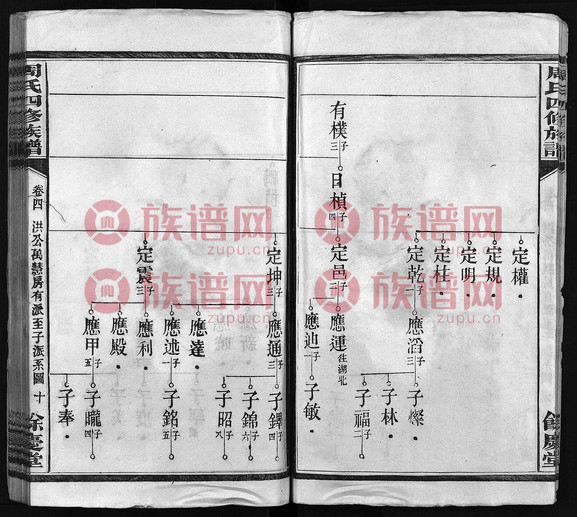 周氏四修族譜
餘慶堂
有樸 子三
日楨 子四
定權
定規
定明
定杜
定乾 子三
定邑 子二
應滔 子三
應運 往湖北
應迪 子一
子燦
子林
子福 二
子敏
定坤 子三
定震 子三
應通 子三
應達
應述 子一
應利
應殿
應甲 子五
子鐸 四
子錦 六
子昭 八
子銘 五
子朧 四
子奉
周氏四修族譜
卷四 洪公萬慧房有派至子派系圖 十
餘慶堂
族谱网
zupu.cn
族谱网
zupu.cn
族谱网
zupu.cn
族谱网
zupu.cn
族谱网
zupu.cn
族谱网
zupu.cn